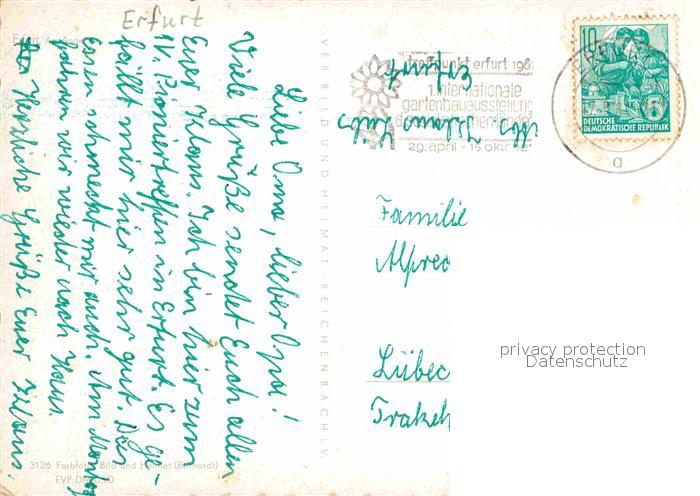 Erfurt
Liebe Oma, lieber Opa!
Viele Grüße sendet Euch allen
Euer Klaus. Ich bin hier zum
IV. Pioniertreffen in Erfurt. Es ge-
fällt mir hier sehr gut. Das
Essen schmeckt mir auch. Am Montag
fahren wir wieder nach Haus.
Herzliche Grüße Euer Klaus.
3126 Farbfoto: Bild und Heimat (Bernhardt)
EVP DM
VERLAG BILD UND HEIMAT · REICHENBACH I. V.
treffpunkt erfurt 1961
1. internationale
gartenbauausstellung
29. april - 15. oktober
Abs. Klaus
Erfurt
10
5
DEUTSCHE
DEMOKRATISCHE REPUBLIK
a
Familie
Alfred
Lübec
Trakeh
privacy protection
Datenschutz